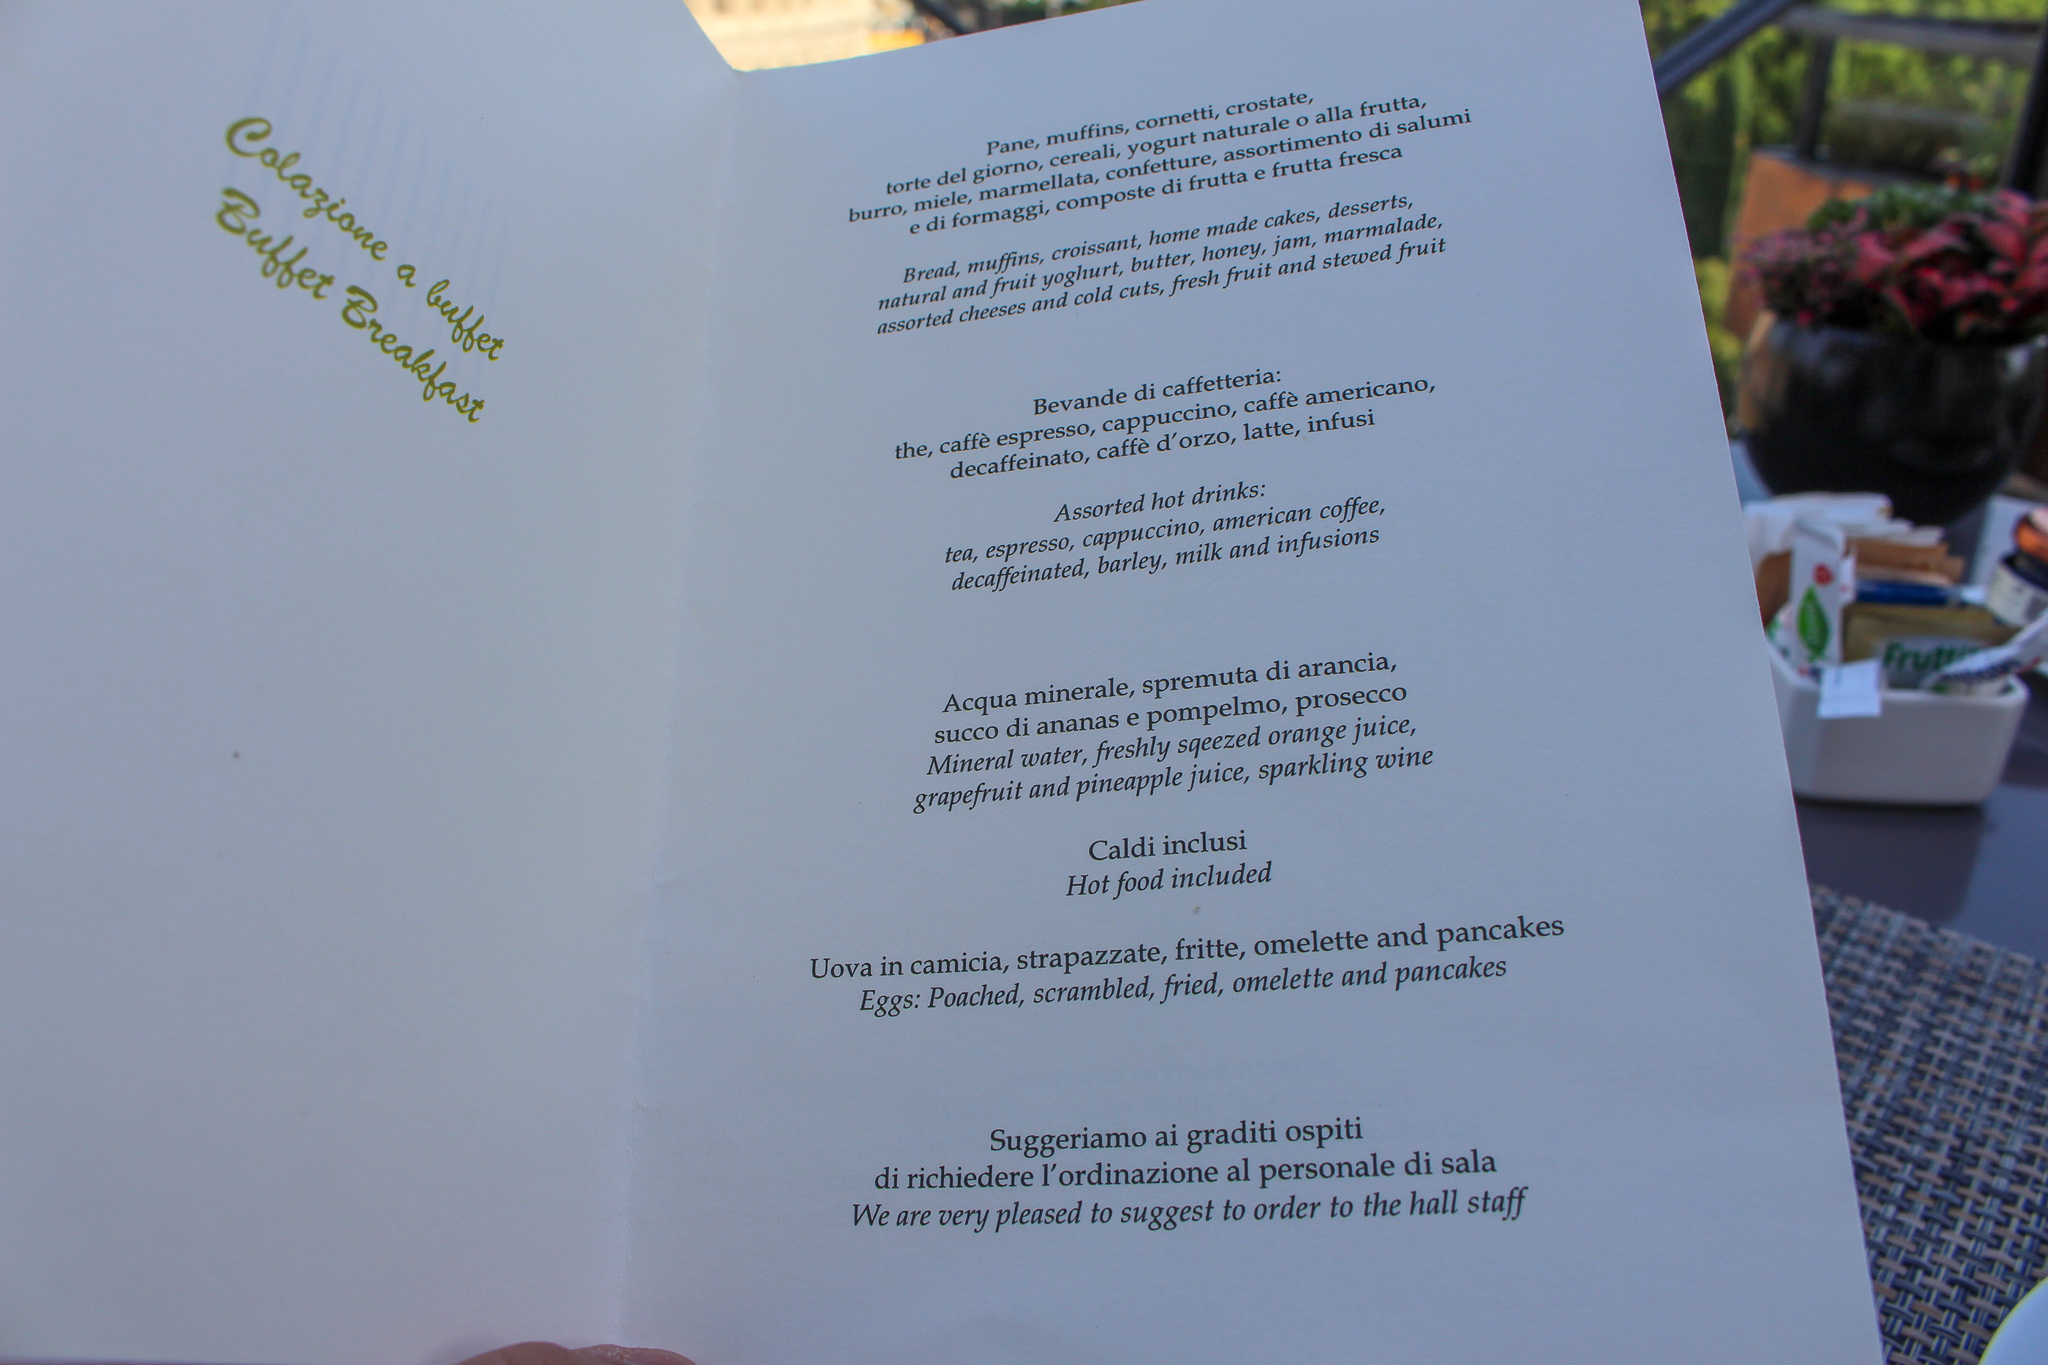 Colazione a buffet
Buffet Breakfast
Pane, muffins, cornetti, crostate,
torte del giorno, cereali, yogurt naturale o alla frutta,
burro, miele, marmellata, confetture, assortimento di salumi
e di formaggi, composte di frutta e frutta fresca
Bread, muffins, croissant, home made cakes, desserts,
natural and fruit yoghurt, butter, honey, jam, marmalade,
assorted cheeses and cold cuts, fresh fruit and stewed fruit
Bevande di caffetteria:
the, caffè espresso, cappuccino, caffè americano,
decaffeinato, caffè d'orzo, latte, infusi
Assorted hot drinks:
tea, espresso, cappuccino, american coffee,
decaffeinated, barley, milk and infusions
Acqua minerale, spremuta di arancia,
succo di ananas e pompelmo, prosecco
Mineral water, freshly sqeezed orange juice,
grapefruit and pineapple juice, sparkling wine
Caldi inclusi
Hot food included
Uova in camicia, strapazzate, fritte, omelette and pancakes
Eggs: Poached, scrambled, fried, omelette and pancakes
Suggeriamo ai graditi ospiti
di richiedere l'ordinazione al personale di sala
We are very pleased to suggest to order to the hall staff